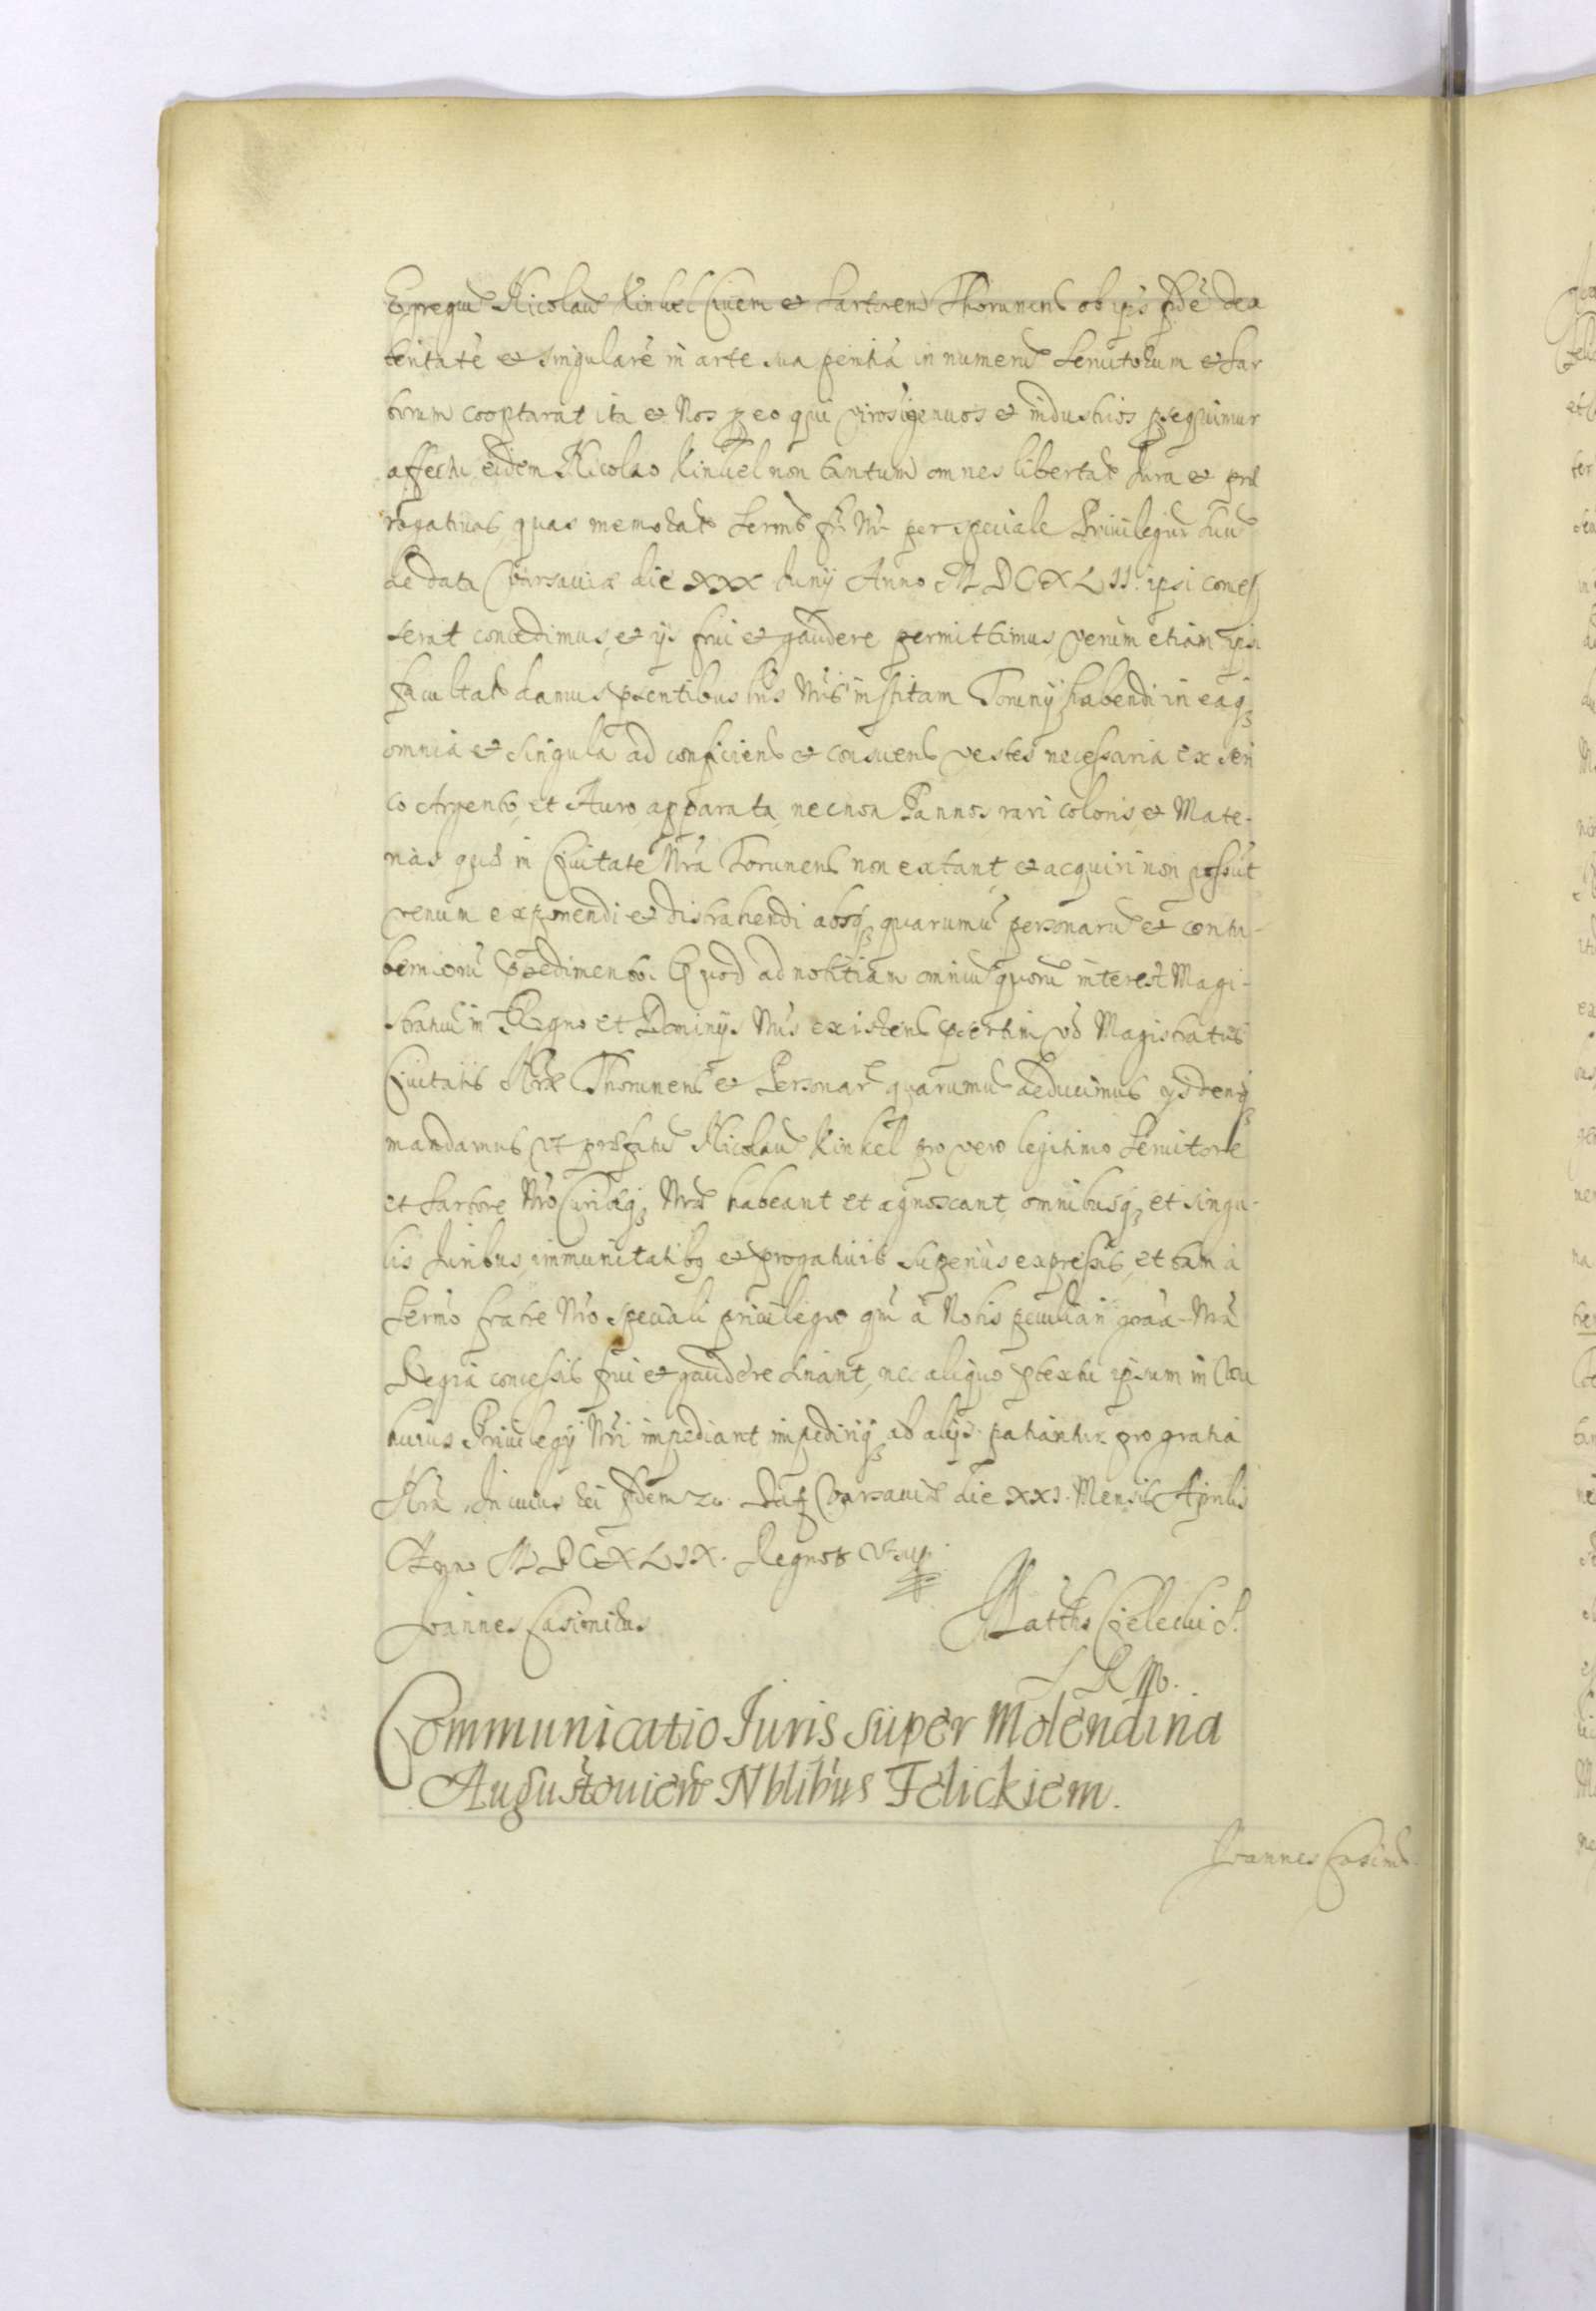 Egregiu Nicolau Kinkel Civem et Sartorem Thorunens ob ipsi fidē dex
teritatē et singularē in arte sua peritiā in numerū Servitorum et Sar
torum cooptarat ita et Nos eo qui viros igenuos et industrios psequimur
affectu eidem Nicolao Kinkel non tantum omnes libertates Jura et prae
rogativas quas memorat Sermus fr Nr per speciale Privilegiu suu
de data Varsaviæ die XXX Juny Anno MDCXLII ipsi conces
serat concedimus, et ijs frui et gaudere permittimus, verum etiam ipsi
facultate damus psentibus lris Nris institam Toruny habendi in eaq3
omnia et singula ad conficiend et consuend vestes necessaria ex seri
co Argento, et Auro apparata, necnon Pannos rari coloris, et Mate-
rias quae in Civitate Nra Torunens non extant et acquiri non possūt
venum exponendi et distrahendi absq3 quarumvis personaru et contu-
berniorū impedimento. Quod ad notitiam omniu quoru interest Magi-
stratuu in Regno et Dominijs Nris existend psertim vo Magistratus
Civitatis Nræ Thorunens et Personar quarumvis deducimus ijsdemq3
mandamus ut præfatu Nicolau Kinkel pro vero legitimo Servitore
et Sartore Nro Curiæq3 Nræ habeant et agnoscant, omnibusq3 et singu-
lis Juribus, immunitatibq et progativis superius expressis, et tam à
Sermo fratre Nro speciali privilegio qm à Nobis peculiari graa Nra
Regia concessis frui et gaudere sinant, nec aliquo ptextu ipsum in usu
huius Privilegij Nri impediant impediriq3 ab alijs patiantur pro gratia
Nra. In cuius rei fidem
Varsaviæ die XXI. Mensis Aprilis
Anno MDCXLIX. Regnor
Joannes Casimirus
Matths Cielecki S.
S R M.
Communicatio Iuris super Molendina
Augustovien Nblibus Felickiem.
Joannes Casim